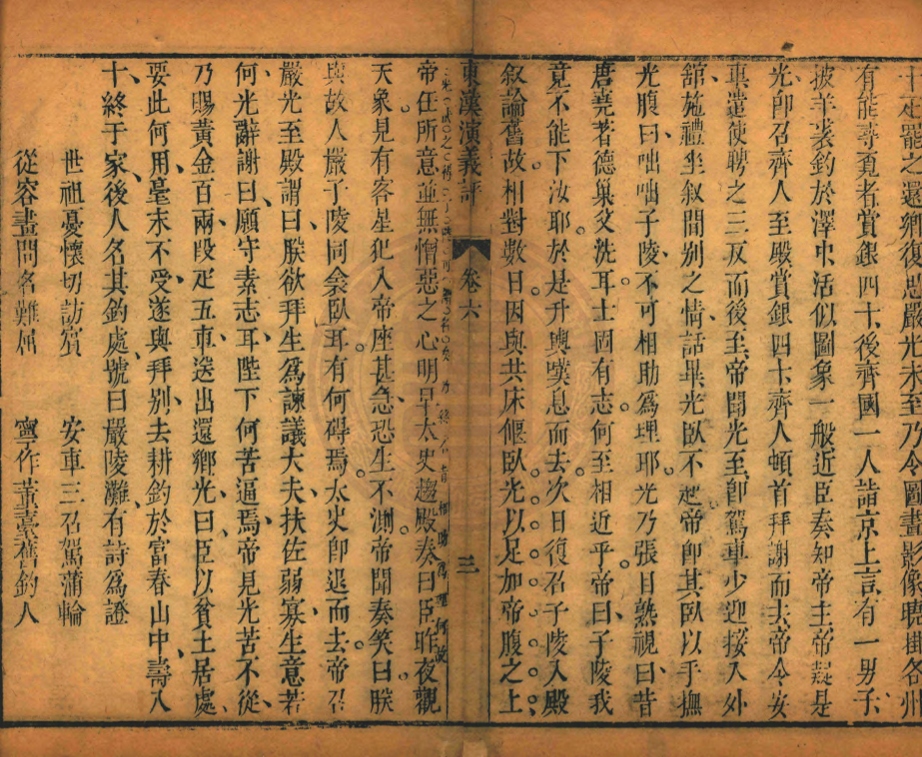 王莽之還鄉後忽嚴光未至乃令圖畫影像曉掛各州
有能尋覓者賞銀四十後齊國一人詣京上言有一男子
披羊裘釣於澤中活似圖象一般近臣奏知帝主帝疑是
光卽召齊人至殿賞銀四十齊人頓首拜謝而去帝令安
車遣使聘之三反而後至帝聞光至卽駕車少迎接入外
舘施禮坐叙間别之情話畢光臥不起帝卽其臥以手撫
光腹曰咄咄子陵不可相助爲理耶光乃張目熟視曰昔
唐堯著德巢父洗耳士固有志何至相近乎帝曰子陵我
竟不能下汝耶於是升輿嘆息而去次日復召子陵入殿
叙論舊故相對數日因與共床偃臥光以足加帝腹之上
東漢演義評
卷六
三
相助爲理何
帝任所意並無憎惡之心明早太史趨殿奏曰臣昨夜觀
天象見有客星犯入帝座甚急恐生不測帝聞奏笑曰朕
與故人嚴子陵同衾臥耳有何碍焉太史卽退而去帝召
嚴光至殿謂曰朕欲拜生爲諫議大夫扶佐弱寡生意若
何光辭謝曰願守素志耳陛下何苦逼焉帝見光苦不從
乃賜黃金百兩段疋五車送出還鄉光曰臣以貧士居處
要此何用毫末不受遂與拜别去耕釣於富春山中壽八
十終于家後人名其釣處號曰嚴陵灘有詩爲證
世祖憂懷切訪賔 安車三召駕蒲輪
從容晝問名難屈 寧作董臺舊釣人